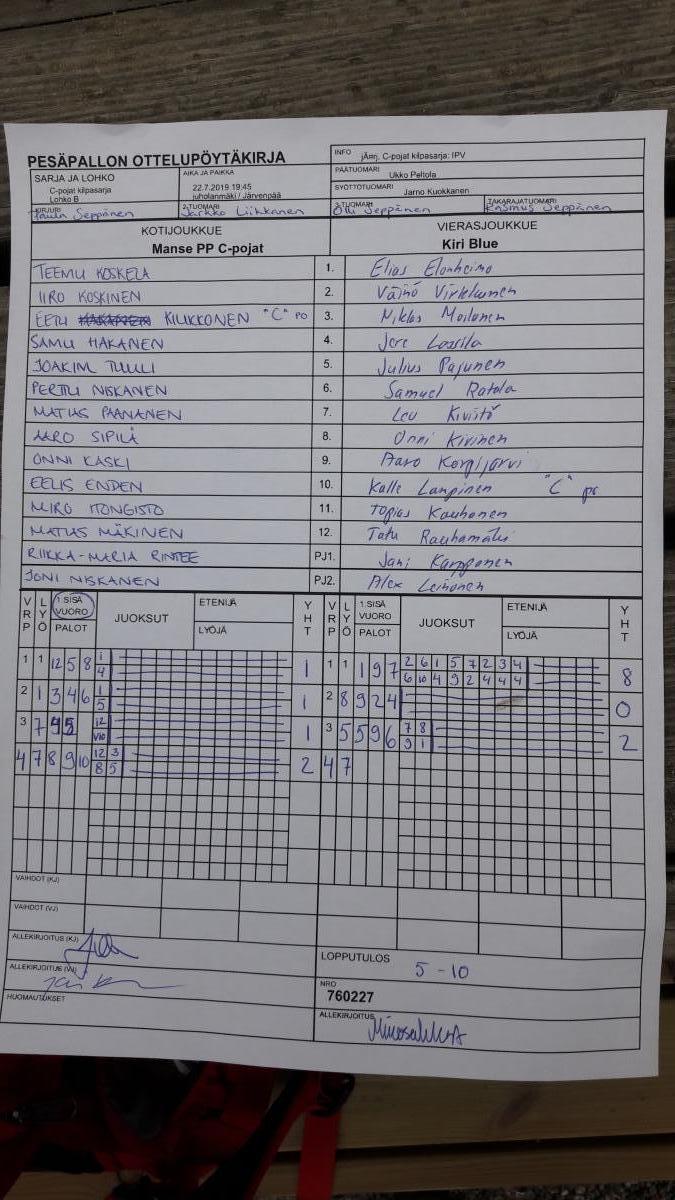 PESÄPALLON OTTELUPÖYTÄKIRJA
INFO jÄrrj, C-pojat kilpasarja: IPV
PÄÄTUOMARI Ukko Peltola
SARJA JA LOHKO
C-pojat kilpasarja
Lohko B
AIKA JA PAIKKA
22.7.2019 19:45
juholanmäki / Järvenpää
SYÖTTÖTUOMARI Jarno Kuokkanen
KIRJURI Paula Seppänen
2-TUOMARI Jarkko Liikkanen
3-TUOMARI Olli Seppänen
TAKARAJATUOMARI Rasmus Seppänen
KOTIJOUKKUE
Manse PP C-pojat
VIERASJOUKKUE
Kiri Blue
TEEMU KOSKELA 1. Elias Elonheimo
IIRO KOSKINEN 2. Väinö
EETU KILKKONEN "C" PO 3. Niklas Moilanen
SAMU HAKANEN 4. Jere Lassila
JOAKIM TUULI 5. Julius Pajunen
PERTTU NISKANEN 6. Samuel Ratola
MATIAS PAANANEN 7. Leu Kivistö
AARO SIPILÄ 8. Onni Kivinen
ONNI KASKI 9. Aaro Korpijärvi
EELIS ENDEN 10. Kalle Lampinen "C" po
MIRO ITONGISTO 11. Topias Kauhanen
MATIAS MÄKINEN 12. Tatu Rauhamäki
RIIKKA-MARIA RINTEE PJ1. Jani Kamponen
JONI NISKANEN PJ2. Alex Leinonen
VRP LYÖ 1.SISÄ VUORO PALOT JUOKSUT ETENIJÄ LYÖJÄ YHT VRP LYÖ 1.SISÄ VUORO PALOT JUOKSUT ETENIJÄ LYÖJÄ YHT
1 1 12 5 8 1 1 1 1 1 9 7 2 6 1 5 7 2 3 4 8
4 6 10 4 9 2 4 4 4
2 1 3 4 6 1 1 2 8 9 2 4 0
5
3 7 12 1 3 5 5 9 6 7 8 2
V10 9 1
4 7 8 9 10 12 3 2 4 7
8 5
VAIHDOT (KJ)
VAIHDOT (VJ)
ALLEKIRJOITUS (KJ)
LOPPUTULOS 5 - 10
ALLEKIRJOITUS (VJ)
NRO
760227
HUOMAUTUKSET
ALLEKIRJOITUS